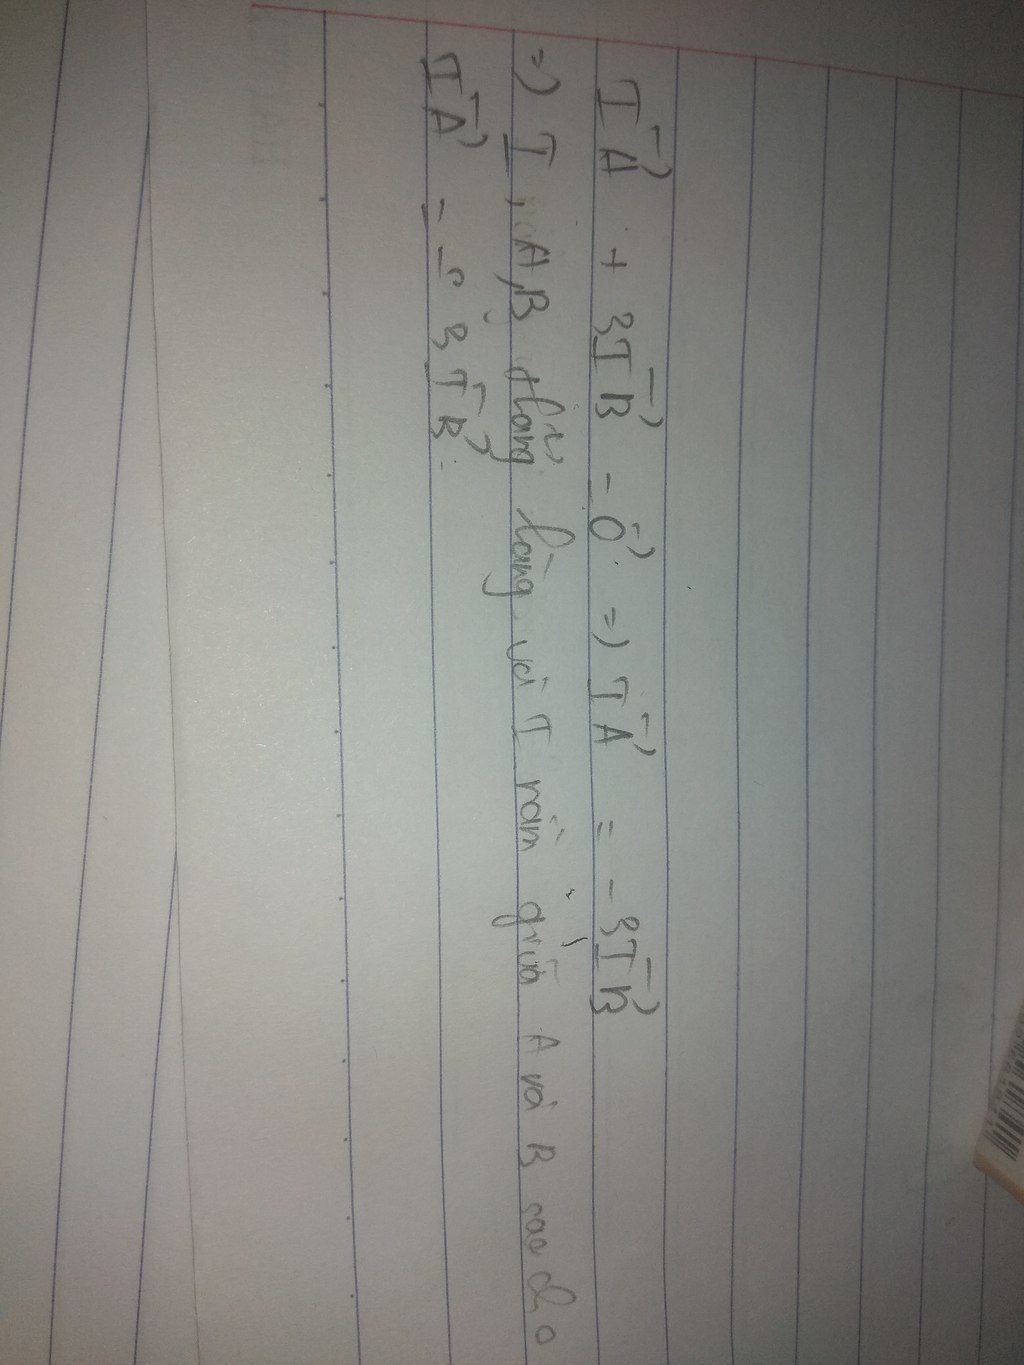 IA⃗ + 3IB⃗ = 0⃗ => IA⃗ = -3IB⃗
=> I, A, B thẳng hàng và I nằm giữa A và B sao cho
IA⃗ = - 3IB⃗.